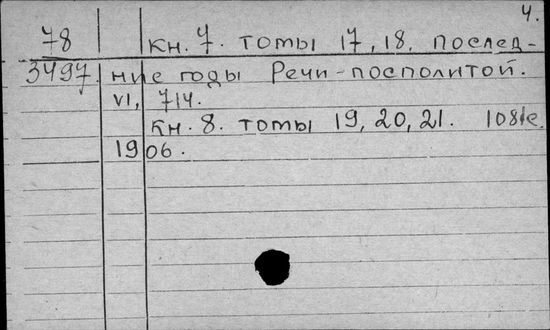 4.
78 кн. 7. томы 17, 18. послед-
3497. ние годы Речи-посполитой.
VI, 714.
кн. 8. томы 19, 20, 21. 1081 с.
1906.